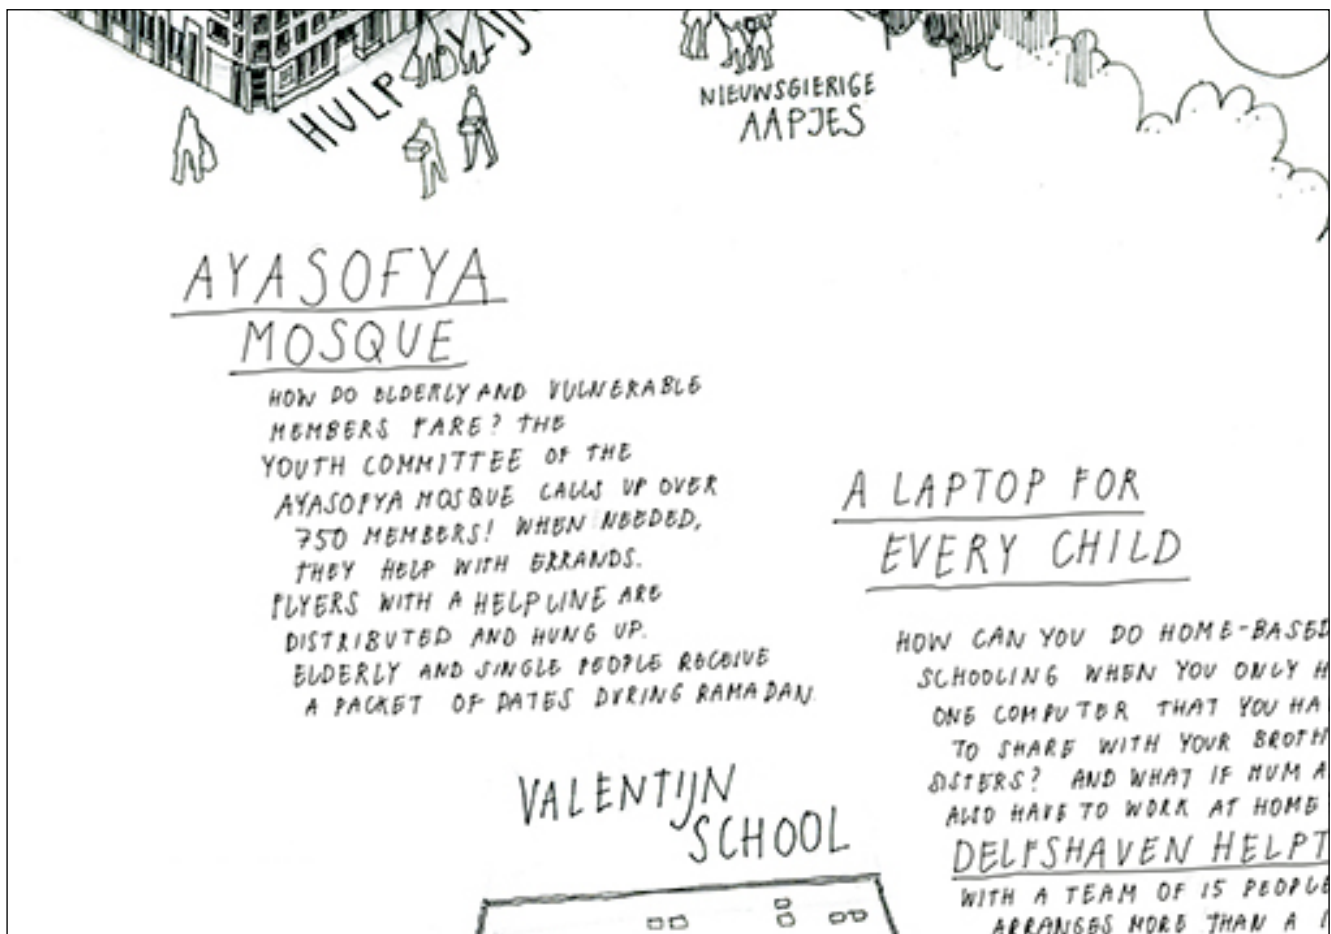 HULP
NIEUWSGIERIGE
AAPJES
AYASOFYA
MOSQUE
HOW DO ELDERLY AND VULNERABLE
MEMBERS FARE? THE
YOUTH COMMITTEE OF THE
AYASOFYA MOSQUE CALLS UP OVER
750 MEMBERS! WHEN NEEDED,
THEY HELP WITH ERRANDS.
FLYERS WITH A HELPLINE ARE
DISTRIBUTED AND HUNG UP.
ELDERLY AND SINGLE PEOPLE RECEIVE
A PACKET OF DATES DURING RAMADAN.
A LAPTOP FOR
EVERY CHILD
HOW CAN YOU DO HOME-BASED
SCHOOLING WHEN YOU ONLY H
ONE COMPUTER THAT YOU HA
TO SHARE WITH YOUR BROTH
SISTERS? AND WHAT IF MUM A
ALSO HAVE TO WORK AT HOME
DELFSHAVEN HELPT
WITH A TEAM OF 15 PEOPLE
ARRANGES MORE THAN A
VALENTIJN
SCHOOL